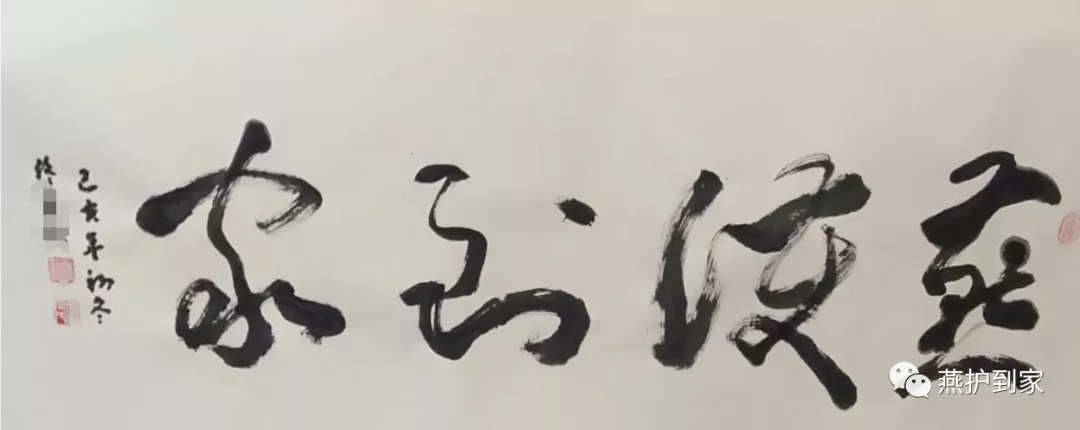 燕護到家
己亥年初冬
燕护到家